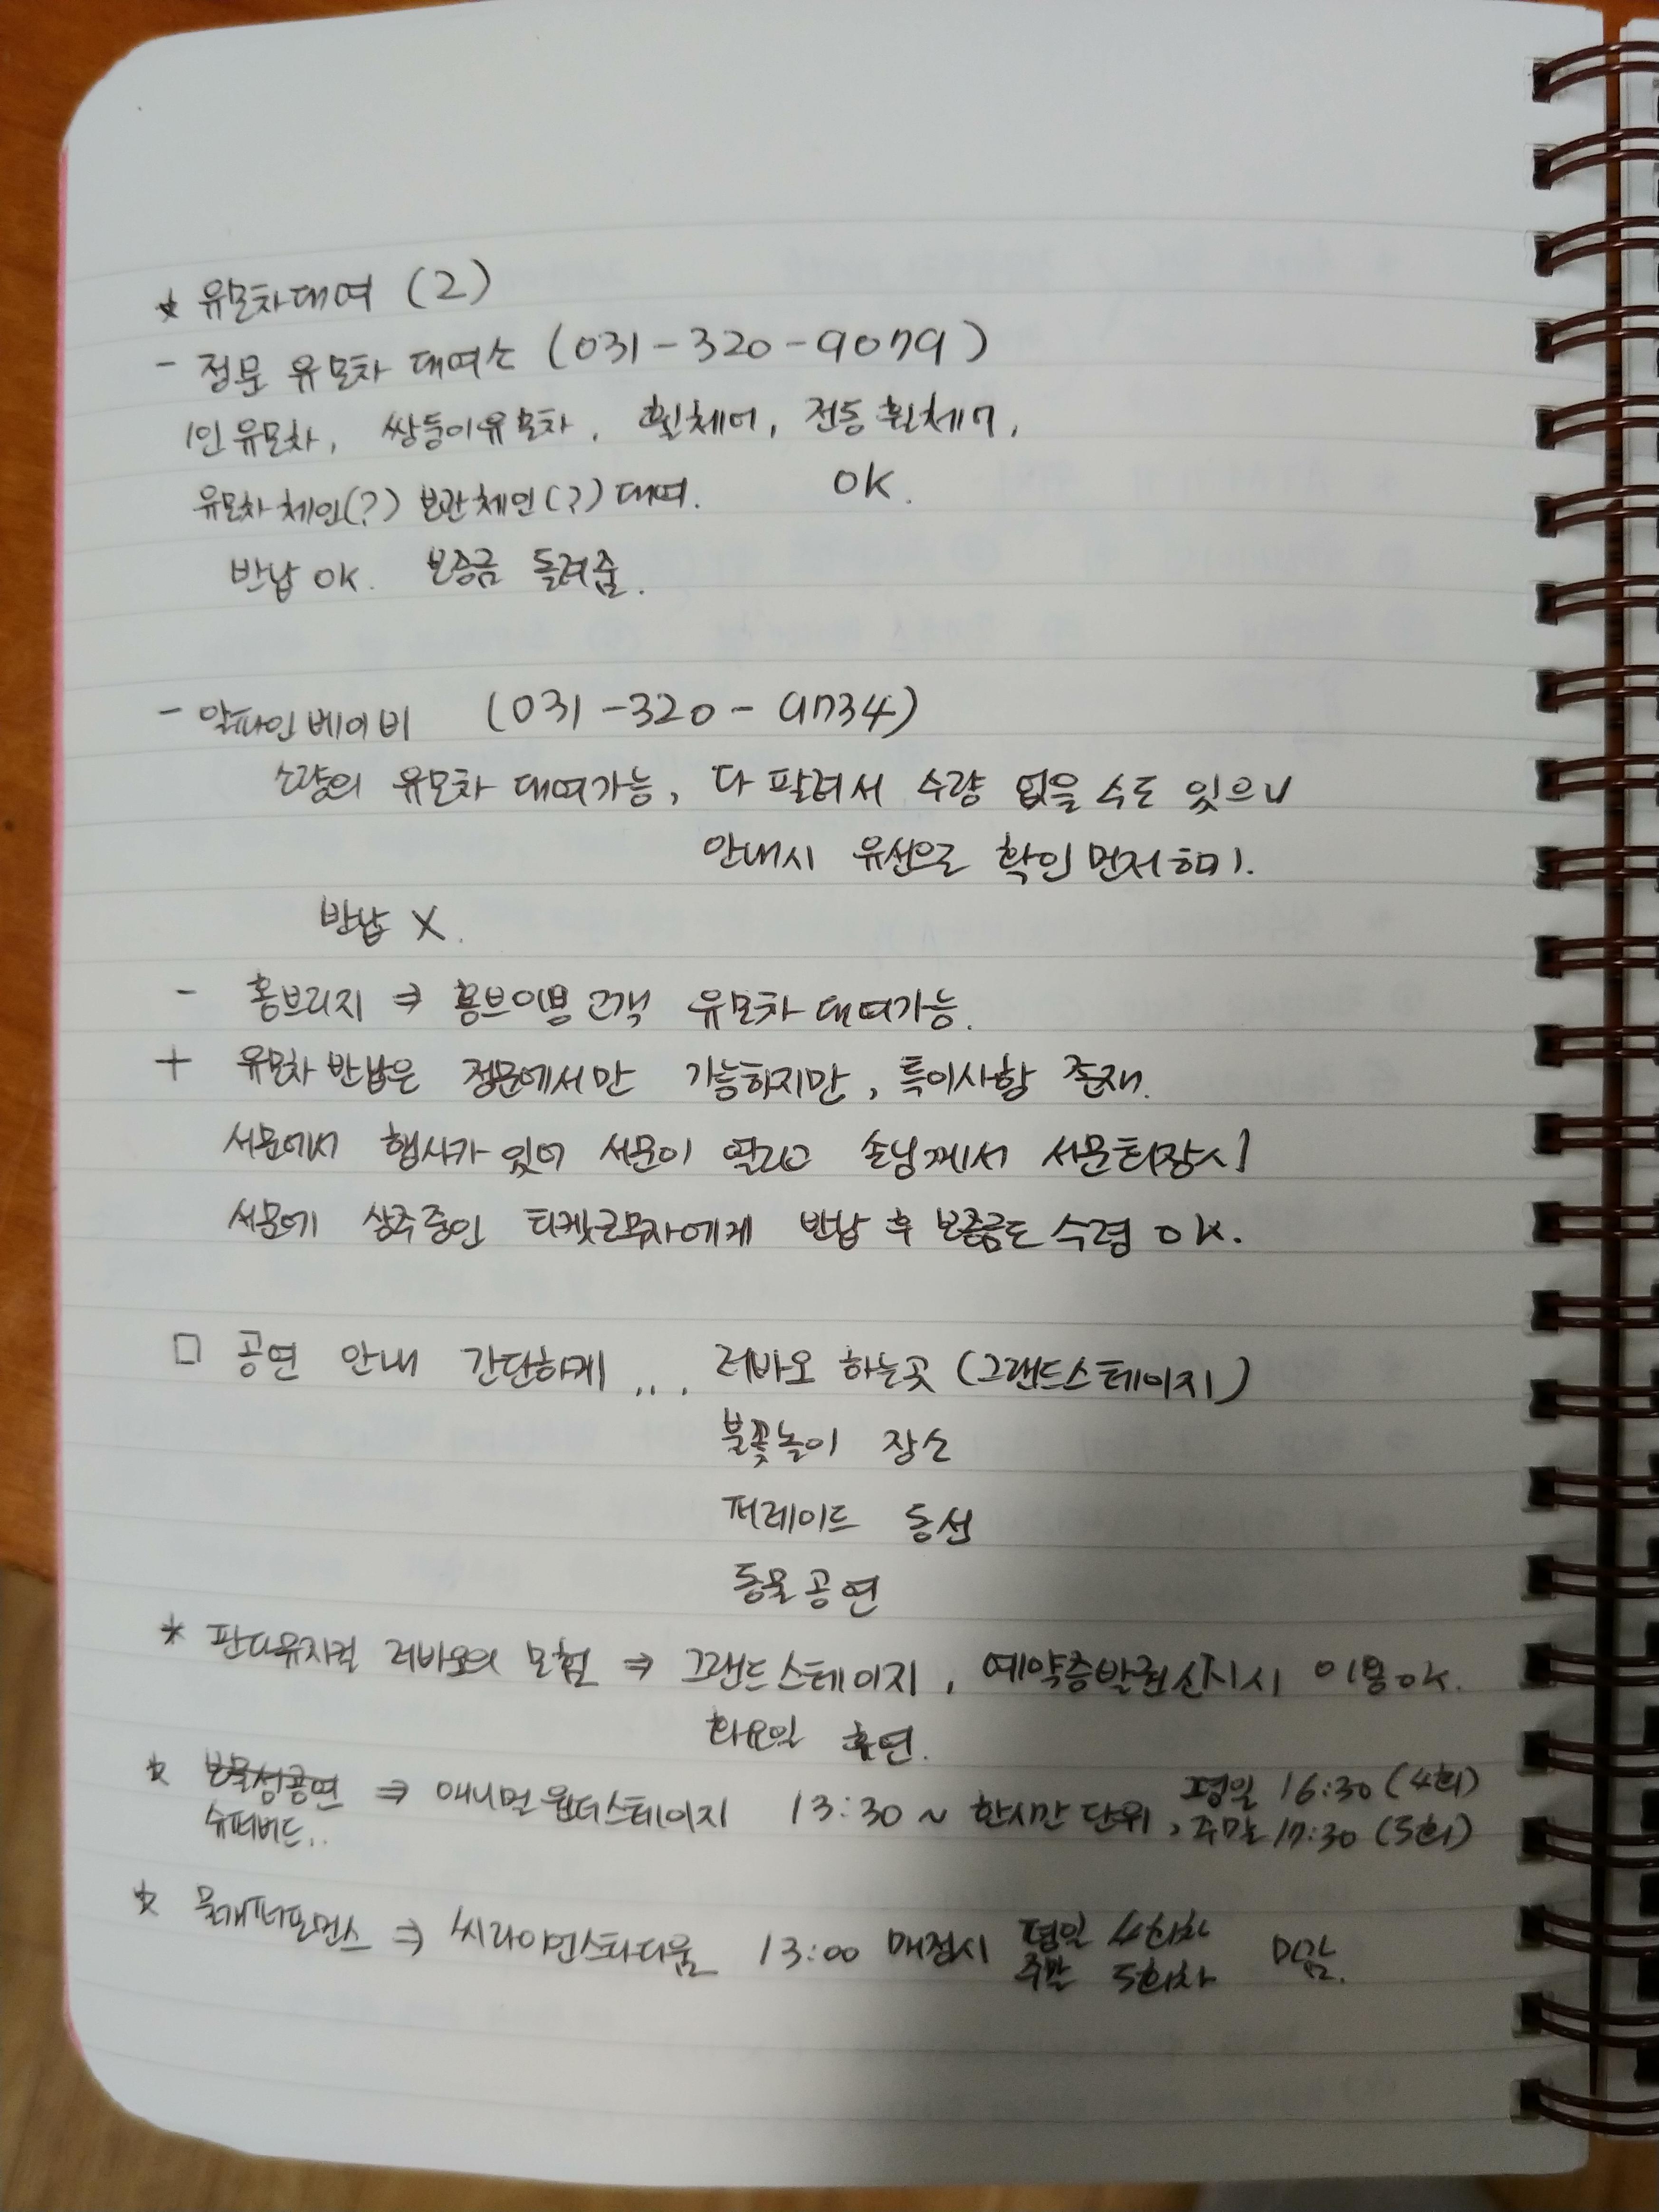 * 유모차대여 (2)
- 정문 유모차 대여소 (031-320-9079)
1인 유모차, 쌍둥이유모차, 휠체어, 전동휠체어,
유모차체인(?) 보관체인(?) 대여. OK.
반납 OK. 보증금 돌려줌.
- 알파인베이비 (031-320-9734)
소량의 유모차 대여가능, 다 팔려서 수량 없을 수도 있으니
안내시 유선으로 확인먼저하기.
반납 X.
- 홈브리지 ⇒ 홈브이용고객 유모차대여가능.
+ 유모차반납은 정문에서만 가능하지만, 특이사항 존재.
서문에서 행사가 있어 서문이 열리고 손님께서 서문퇴장시
서문에 상주중인 티켓근무자에게 반납 후 보증금도 수령 OK.
□ 공연 안내 간단하게... 러바오 하는곳 (그랜드스테이지)
불꽃놀이 장소
퍼레이드 동선
동물공연
* 판다뮤지컬 러바오의 모험 ⇒ 그랜드스테이지, 예약증발권소지시 이용OK.
화요일 휴연.
* 보물성공연 ⇒ 애니멀원더스테이지 13:30 ~ 한시간 단위, 평일 16:30 (4회)
슈퍼버드.. 주말 17:30 (5회)
* 물개퍼포먼스 ⇒ 씨라이언스타디움 13:00 매정시 평일 4회차 마감.
주말 5회차